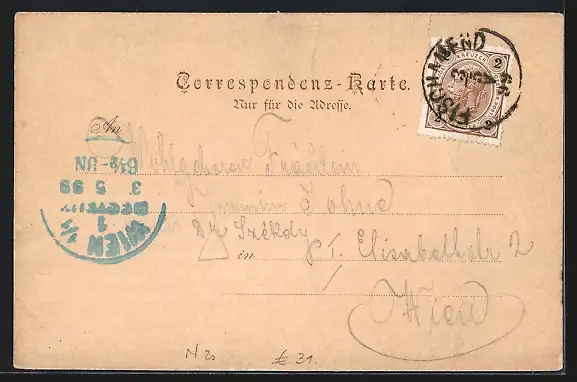 Correspondenz-Karte.
Nur für die Adresse.
FISCHAMEND
99
KREUZER
2
2
An
Wohlgeboren Fräulein
dz Székely
in I. Elisabethplz 2
Wien
WIEN 1/1
1
BESTELLT
3 5 99
6½-8N
N 20
€ 31.